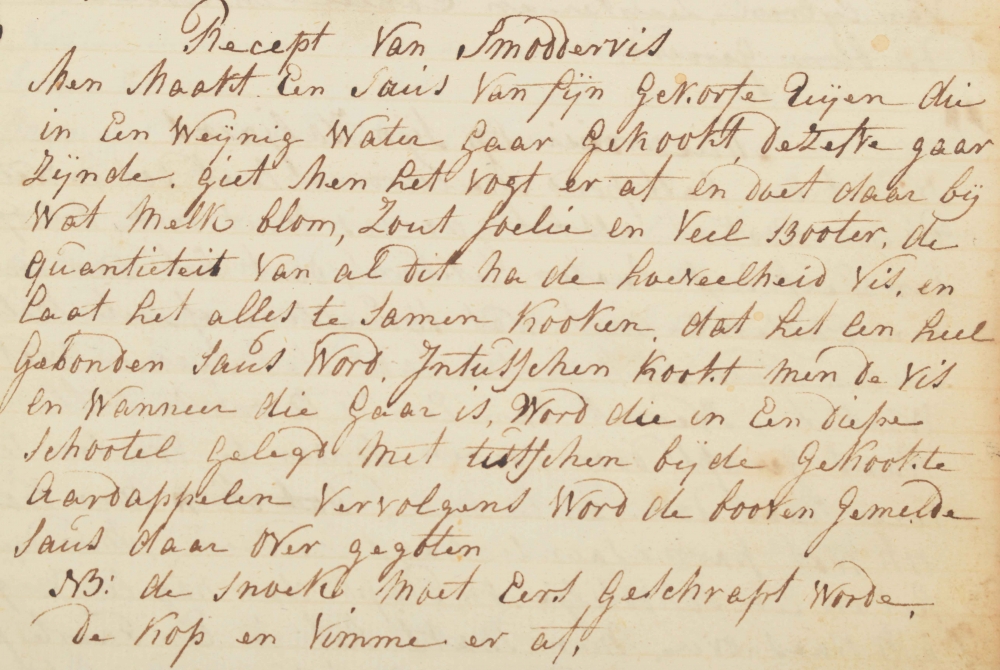 Recept Van Smoddervis
Men Maakt Een Saus Van fijn Gekorfe Uijen die
in Een Weijnig Water Gaar Gekookt, dezelve gaar
Zijnde. giet Men het Vogt er af en doet daar bij
Wat Melk blom, Zout foelie en Veel Booter, de
quantieteit Van al dit na de hoeveelheid Vis, en
laat het alles te Samen Kooken, dat het Een heel
Gebonden Saus Word. Intusschen Kookt men de Vis
en Wanneer die Gaar is, Word die in Een Diepe
Schootel Gelegd Met tusschen bijde Gekookte
Aardappelen Vervolgens Word de booven Gemelde
Saus daar Over gegoten
NB: de Snoek Moet Eers Geschrapt Worde,
De Kop en Vimme er af.